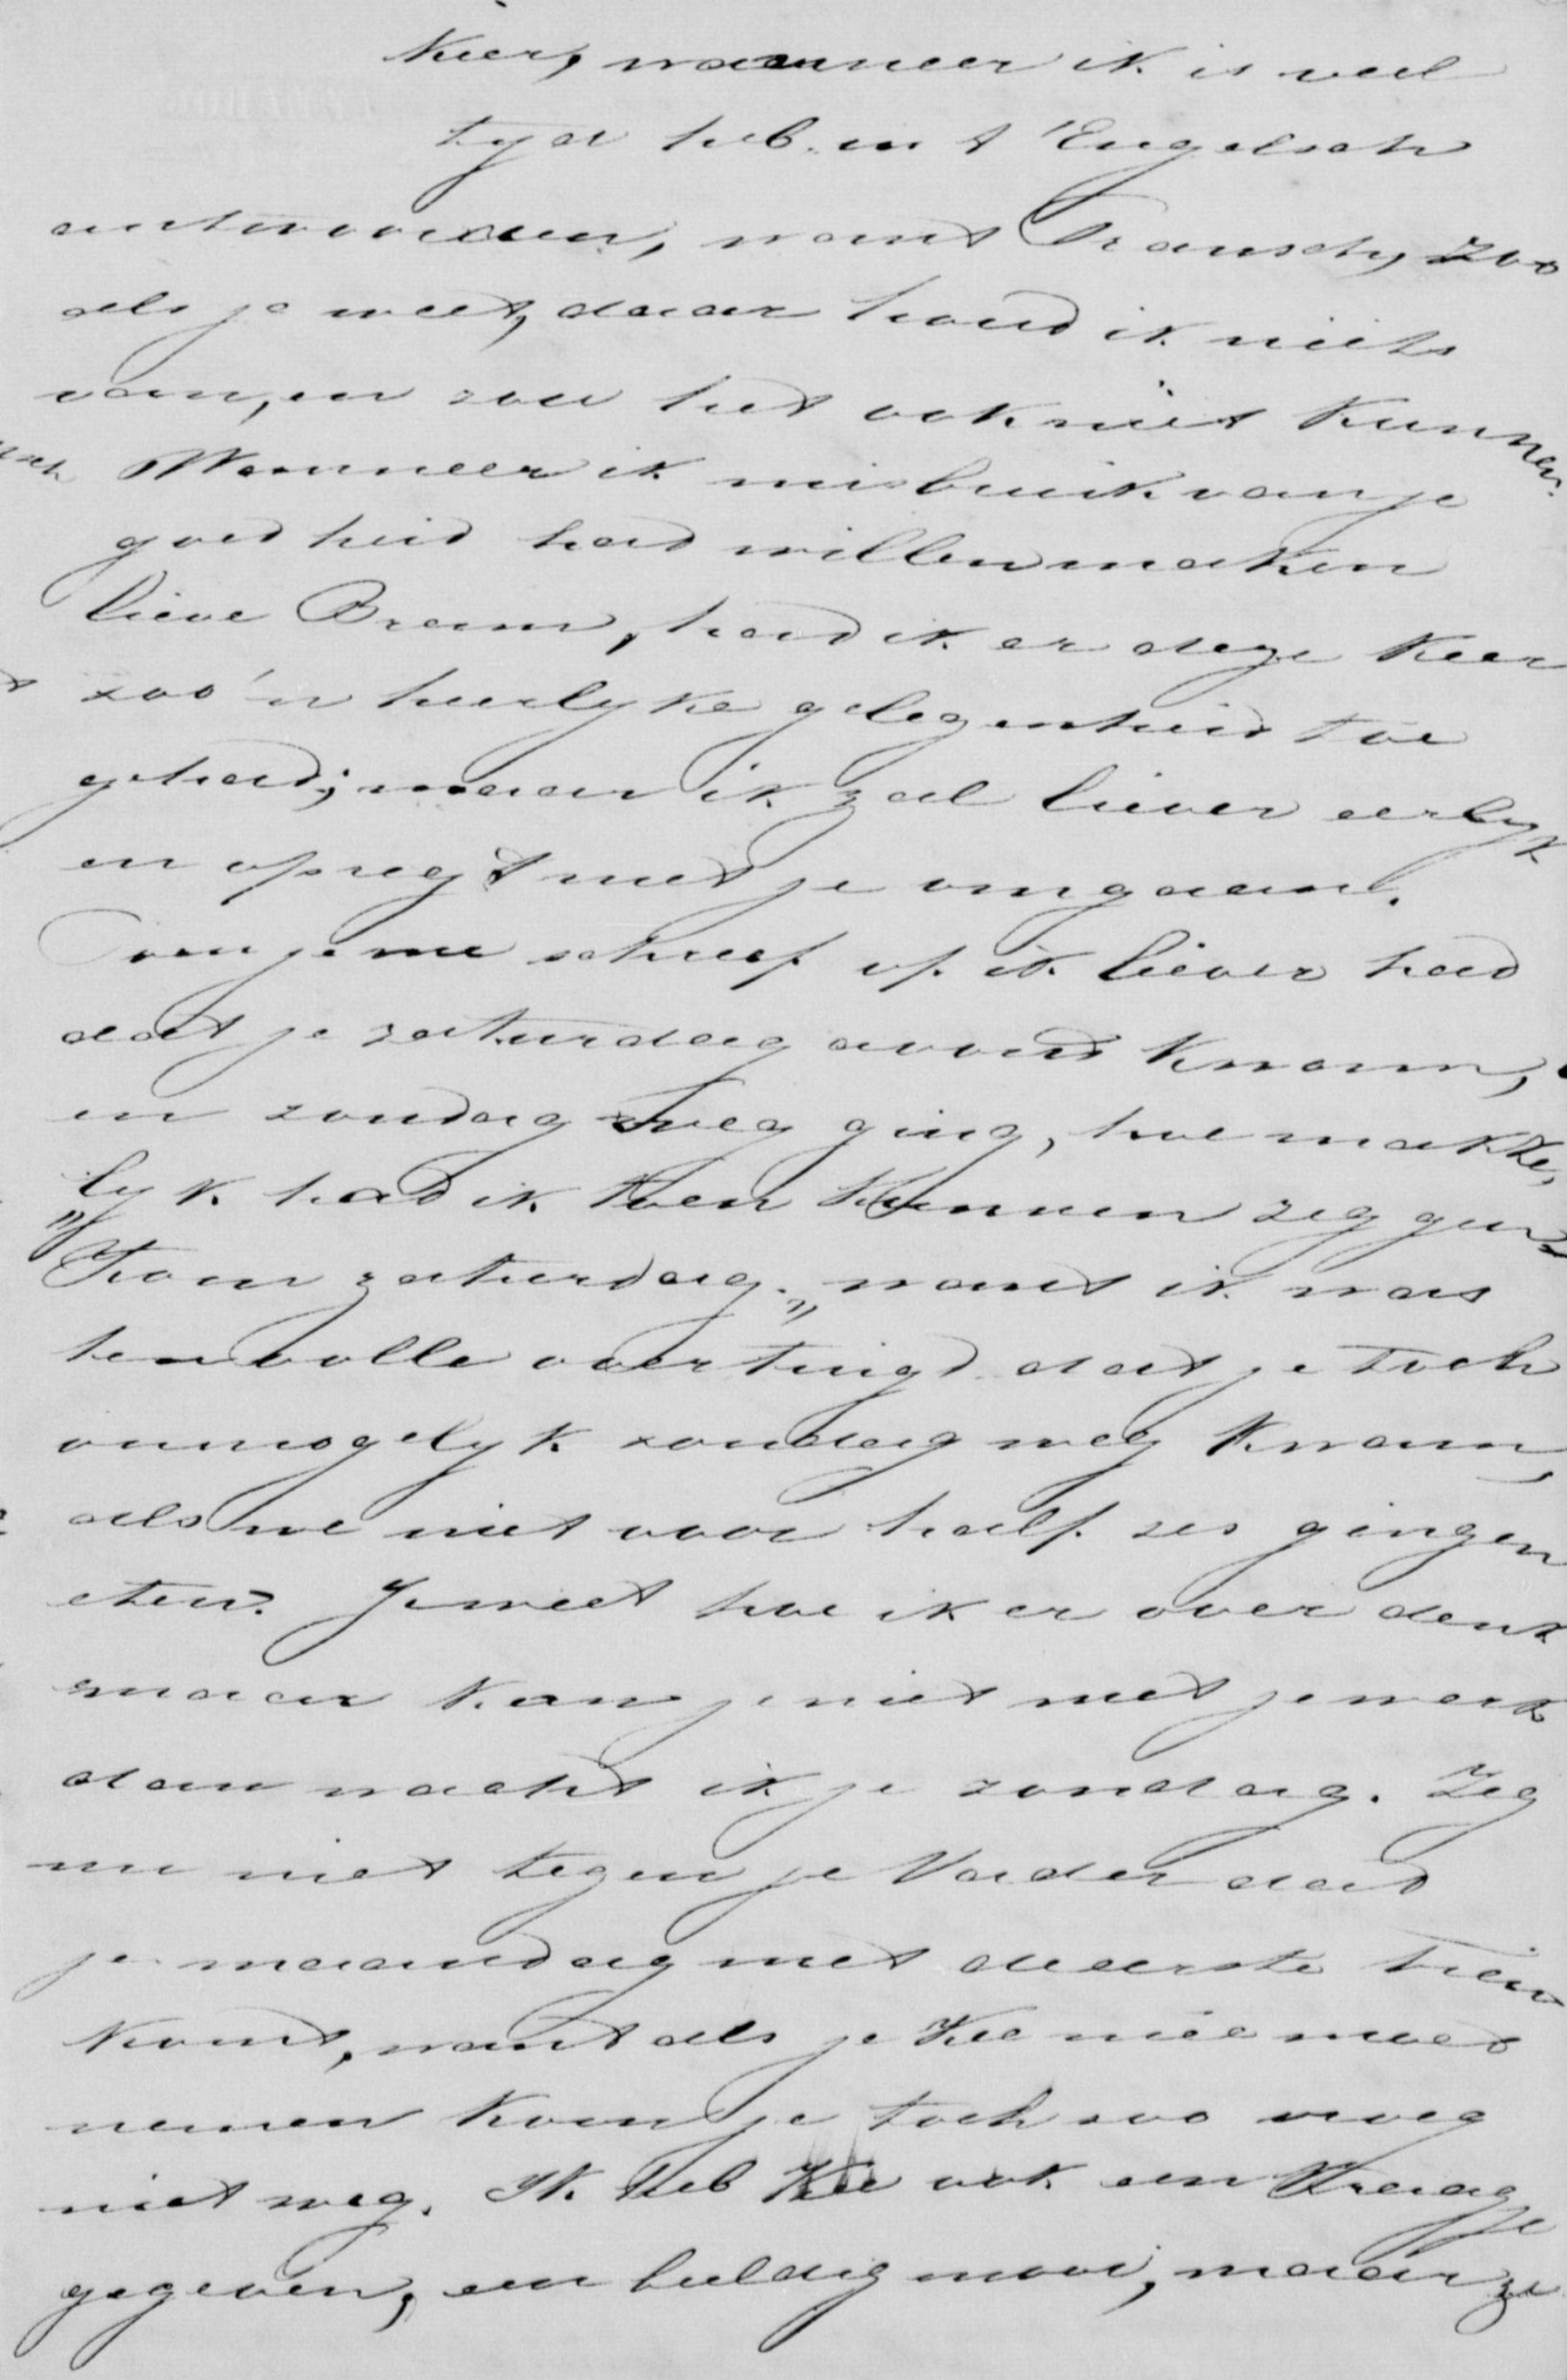 keer, wanneer ik is veel
tyd heb. in t 'Engelsch
antwoorden, want Fransch, zoo
als je weet, daar houd ik niets
van, en zou het ook niet kunnen.
Wanneer ik misbruik van je
goedheid had willen maken
lieve Bram, had ik er deze keer
zoo'n heerlyke gelegenheid toe
gehad; maar ik zal liever eerlyk
en opregt met je omgaan.
Toen je me schreef of ik liever had
dat je zaturdag avond kwam,
en zondag weg ging, hoe makke,
lyk had ik toen kunnen zeggen
"Kom zaturdag." want ik was
ten volle overtuigd dat je toch
onmogelyk zondag weg kwam,
als we niet voor half zes gingen
eten. Je weet hoe ik er over denk
maar kan je niet met je werk
dan wacht ik je zondag. Zeg
nu niet tegen je Vader dat
je maandag met de eerste trein
komt, want als je Kee meê moet
nemen kom je toch zoo vroeg
niet weg. Ik heb Kee ook een kraagje
gegeven, een beeldig mooi, maar ze